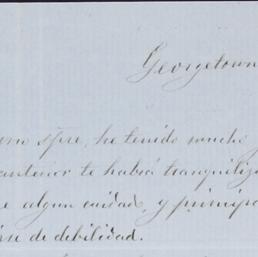 Georgetown
he tenido mucho
anterior te habrá tranquiliz
algun cuidad y princip
de debilidad.